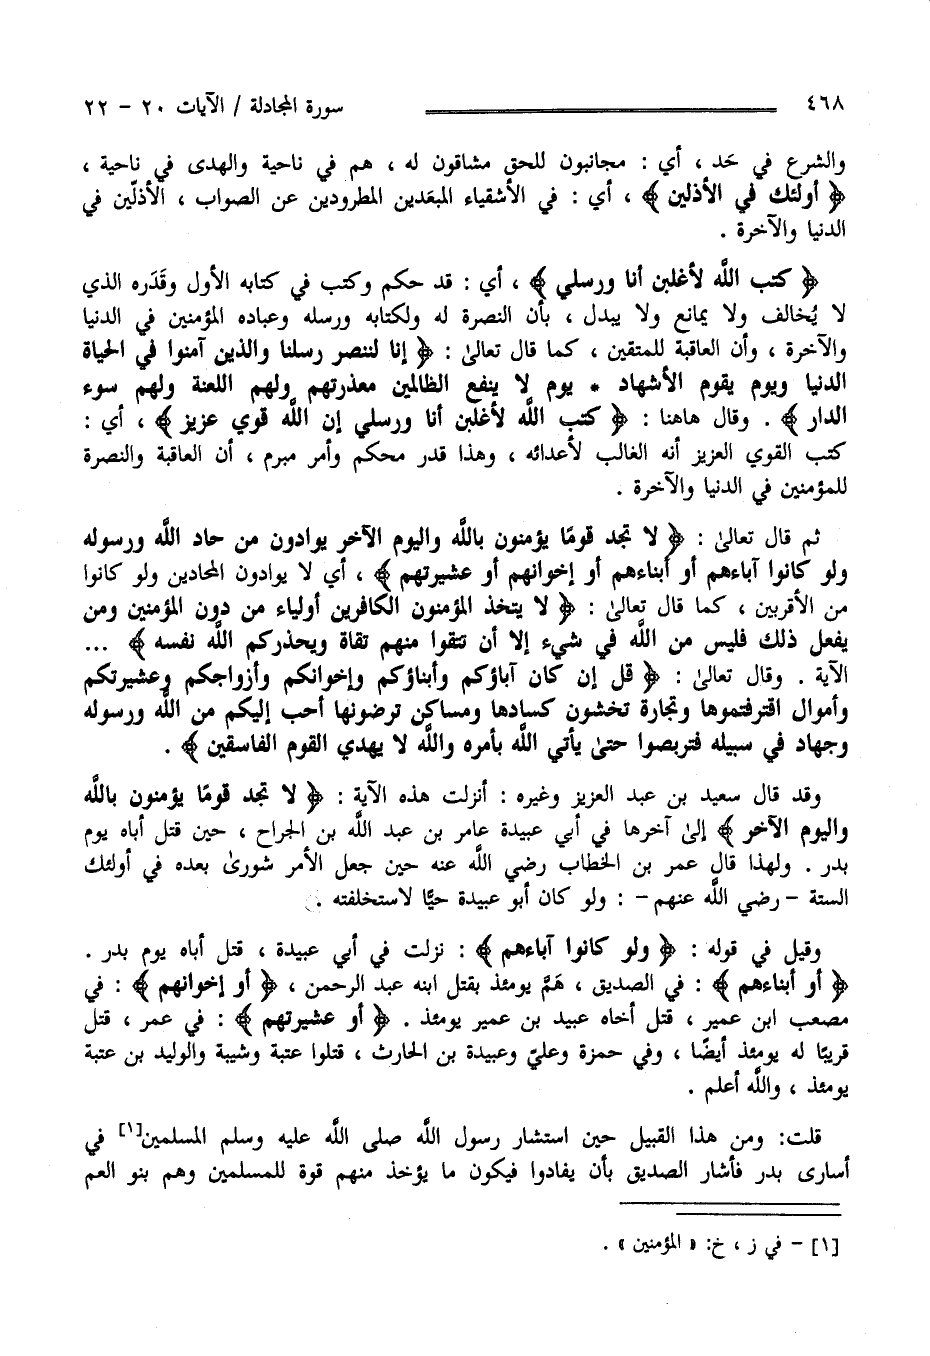 ٤٦٨ سورة المجادلة / الآيات ٢٠ - ٢٢
والشرع في حَد ، أي : مجانبون للحق مشاقون له ، هم في ناحية والهدى في ناحية ،
﴿ أولئك في الأذلين ﴾ ، أي : في الأشقياء المبعَدين المطرودين عن الصواب ، الأذلّين في
الدنيا والآخرة .
﴿ كتب اللَّه لأغلبن أنا ورسلي ﴾ ، أي : قد حكم وكتب في كتابه الأول وقَدَره الذي
لا يُخالف ولا يمانع ولا يبدل ، بأن النصرة له ولكتابه ورسله وعباده المؤمنين في الدنيا
والآخرة ، وأن العاقبة للمتقين ، كما قال تعالىٰ : ﴿ إنا لننصر رسلنا والذين آمنوا في الحياة
الدنيا ويوم يقوم الأشهاد * يوم لا ينفع الظالمين معذرتهم ولهم اللعنة ولهم سوء
الدار ﴾ . وقال هاهنا : ﴿ كتب اللَّه لأغلبن أنا ورسلي إن اللَّه قوي عزيز ﴾ ، أي :
كتب القوي العزيز أنه الغالب لأعدائه ، وهذا قدر محكم وأمر مبرم ، أن العاقبة والنصرة
للمؤمنين في الدنيا والآخرة .
ثم قال تعالىٰ : ﴿ لا تجد قومًا يؤمنون باللَّه واليوم الآخر يوادون من حاد اللَّه ورسوله
ولو كانوا آباءهم أو أبناءهم أو إخوانهم أو عشيرتهم ﴾ ، أي لا يوادون المحادين ولو كانوا
من الأقربين ، كما قال تعالىٰ : ﴿ لا يتخذ المؤمنون الكافرين أولياء من دون المؤمنين ومن
يفعل ذلك فليس من اللَّه في شيء إلا أن تتقوا منهم تقاة ويحذركم اللَّه نفسه ﴾ ...
الآية . وقال تعالىٰ : ﴿ قل إن كان آباؤكم وأبناؤكم وإخوانكم وأزواجكم وعشيرتكم
وأموال اقترفتموها وتجارة تخشون كسادها ومساكن ترضونها أحب إليكم من اللَّه ورسوله
وجهاد في سبيله فتربصوا حتىٰ يأتي اللَّه بأمره واللَّه لا يهدي القوم الفاسقين ﴾ .
وقد قال سعيد بن عبد العزيز وغيره : أنزلت هذه الآية : ﴿ لا تجد قومًا يؤمنون باللَّه
واليوم الآخر ﴾ إلىٰ آخرها في أبي عبيدة عامر بن عبد اللَّه بن الجراح ، حين قتل أباه يوم
بدر . ولهذا قال عمر بن الخطاب رضي اللَّه عنه حين جعل الأمر شورىٰ بعده في أولئك
الستة - رضي اللَّه عنهم - : ولو كان أبو عبيدة حيًّا لاستخلفته .
وقيل في قوله : ﴿ ولو كانوا آباءهم ﴾ : نزلت في أبي عبيدة ، قتل أباه يوم بدر .
﴿ أو أبناءهم ﴾ : في الصديق ، هَمَّ يومئذ بقتل ابنه عبد الرحمن ، ﴿ أو إخوانهم ﴾ : في
مصعب ابن عمير ، قتل أخاه عبيد بن عمير يومئذ . ﴿ أو عشيرتهم ﴾ : في عمر ، قتل
قريبًا له يومئذ أيضًا ، وفي حمزة وعليّ وعبيدة بن الحارث ، قتلوا عتبة وشيبة والوليد بن عتبة
يومئذ ، واللَّه أعلم .
قلت: ومن هذا القبيل حين استشار رسول اللَّه صلى اللَّه عليه وسلم المسلمين[١] في
أسارى بدر فأشار الصديق بأن يفادوا فيكون ما يؤخذ منهم قوة للمسلمين وهم بنو العم
[١] - في ز ، خ: « المؤمنين » .